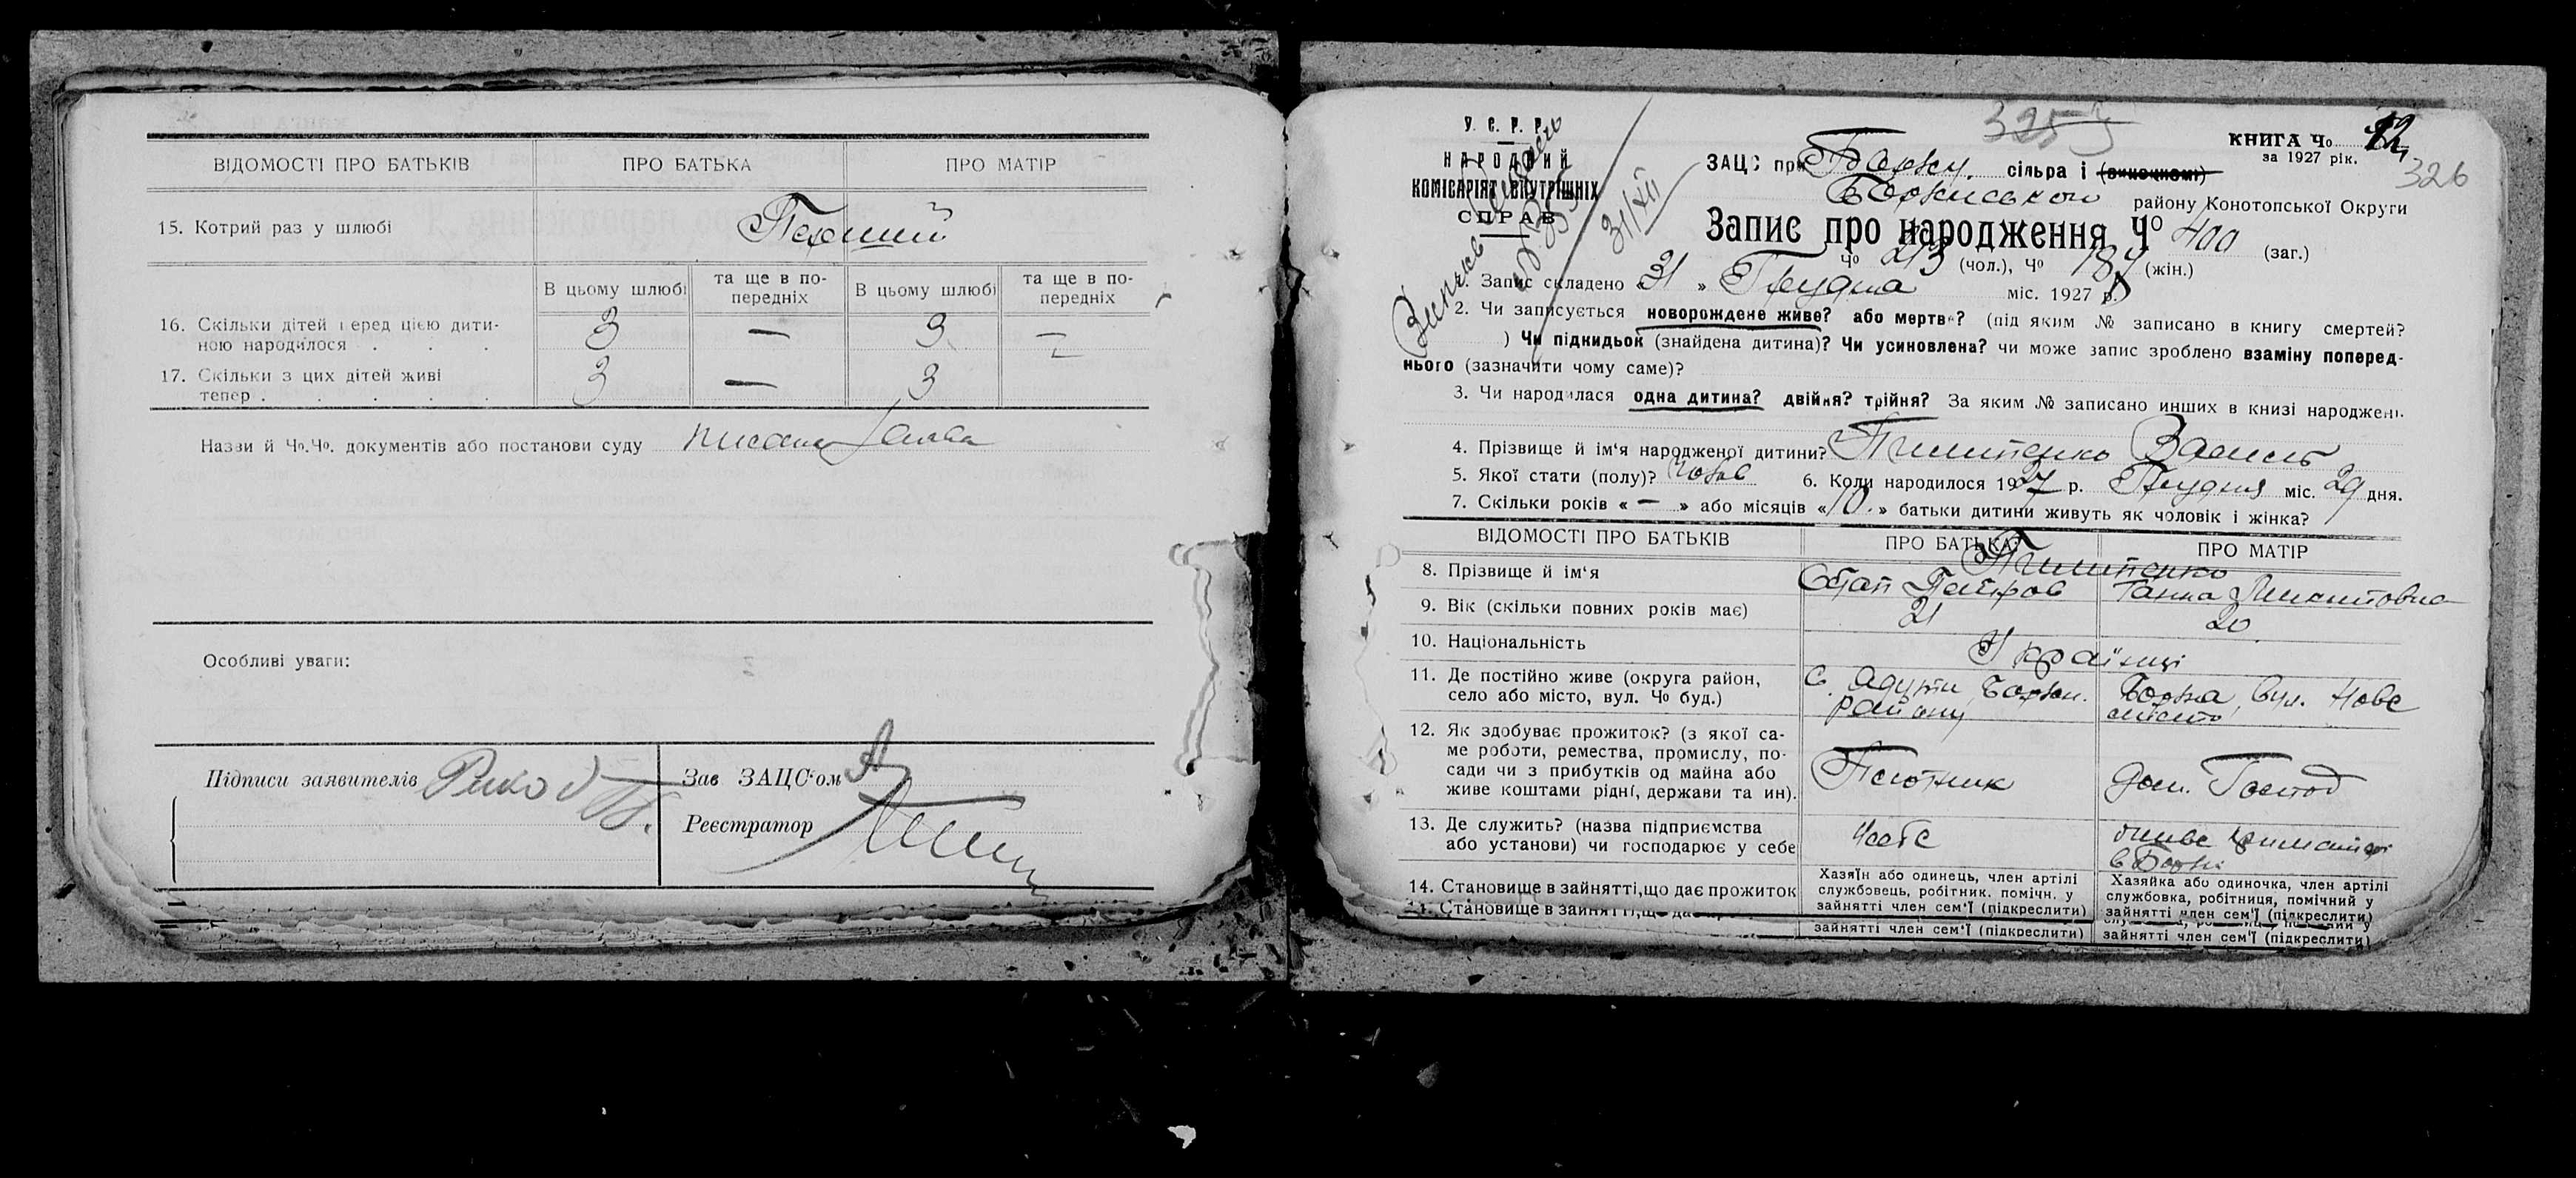 ВІДОМОСТІ ПРО БАТЬКІВ ПРО БАТЬКА ПРО МАТІР
15. Котрий раз у шлюбі Перший
В цьому шлюбі та ще в попередніх В цьому шлюбі та ще в попередніх
16. Скільки дітей перед цією дитиною народилося 3 — 3 —
17. Скільки з цих дітей живі тепер 3 — 3
Назви й Чо.Чо. документів або постанови суду писана заява
Особливі уваги:
Підписи заявителів
Зав ЗАЦС'ом
Реєстратор
325
326
У. С. Р. Р.
НАРОДНИЙ
КОМІСАРІЯТ ВНУТРІШНІХ
СПРАВ
31/XII
КНИГА Чо 12
за 1927 рік.
ЗАЦС при Борзн. сільра і (виконкомі)
Борзнського району Конотопської Округи
Запис про народження Чо 400 (заг.)
Чо 213 (чол.), Чо 187 (жін.)
1. Запис складено «31» Грудня міс. 1927 р.
2. Чи записується новорождене живе? або мертве? (під яким № записано в книгу смертей?
) Чи підкидьок (знайдена дитина)? Чи усиновлена? чи може запис зроблено взаміну поперед-
нього (зазначити чому саме)?
3. Чи народилася одна дитина? двійня? трійня? За яким № записано инших в книзі народжені.
4. Прізвище й ім'я народженої дитини? Пилипенко Василь
5. Якої стати (полу)? чолов 6. Коли народилося 1927 р. Грудня міс. 29 дня.
7. Скільки років « — » або місяців «10.» батьки дитини живуть як чоловік і жінка?
ВІДОМОСТІ ПРО БАТЬКІВ ПРО БАТЬКА ПРО МАТІР
Пилипенко
8. Прізвище й ім'я Остап Петров Ганна Микитовна
9. Вік (скільки повних років має) 21 20
10. Національність Українці
11. Де постійно живе (округа район,
село або місто, вул. Чо буд.)
С. Адути Борзн. району
Борзна, вул. Нове місто
12. Як здобуває прожиток? (з якої са-
ме роботи, ремества, промислу, по-
сади чи з прибутків од майна або
живе коштами рідні, держави та ин).
Плотник
Дом. Господ
13. Де служить? (назва підприємства
або установи) чи господарює у себе
в Борзні
14. Становище в зайнятті,що дає прожиток
Хазяїн або одинець, член артілі
службовець, робітник. помічн. у
зайнятті член сем'ї (підкреслити)
Хазяйка або одиночка, член артілі
службовка, робітниця, помічний у
зайнятті член сем'ї (підкреслити)
зайнятті член сем'ї (підкреслити)
зайнятті член сем'ї (підкреслити)